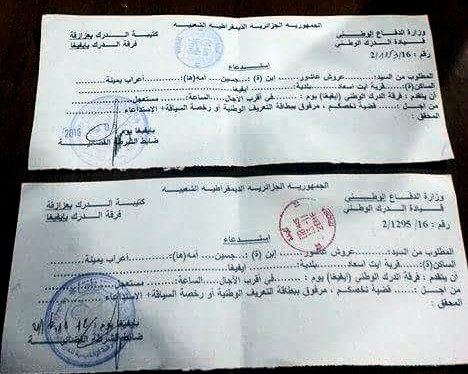 الجمهورية الجزائرية الديمقراطية الشعبية
وزارة الدفاع الوطني
قيادة الدرك الوطني
رقم : 2/1153/16
كتيبة الدرك بعزازقة
فرقة الدرك بإيفيغا
إستدعاء
المطلوب من السيد:.... عروش عاشور.... إبن (ة) :...حسين.... أمه(ها):.... أعراب يمينة....
الساكن(ة): قرية أيت اسعد..... بلدية:...... ايفيغا
أن يتقدم : فرقة الدرك الوطني (إيفيغا) يوم : في أقرب الآجال... الساعة:...... مستعجل
من اجل : قضية تخصكم – مرفوق ببطاقة التعريف الوطنية أو رخصة السياقة+ الإستدعاء
المحقق :
بإيفيغا يوم
ضابط الشرطة القضائية
2016
الجمهورية الجزائرية الديمقراطية الشعبية
وزارة الدفاع الوطني
قيادة الدرك الوطني
رقم : 16/ 2/1295
كتيبة الدرك بعزازقة
فرقة الدرك بإيفيغا
إستدعاء
المطلوب من السيد:.... عروش عاشور.... إبن (ة) :...حسين.... أمه(ها):.... أعراب يمينة....
الساكن(ة): قرية أيت اسعد..... بلدية:...... ايفيغا
أن يتقدم : فرقة الدرك الوطني (إيفيغا) يوم : في أقرب الآجال... الساعة:...... مستعجل
من اجل : قضية تخصكم – مرفوق ببطاقة التعريف الوطنية أو رخصة السياقة+ الإستدعاء
المحقق :
بإيفيغا يوم
ضابط الشرطة القضائية